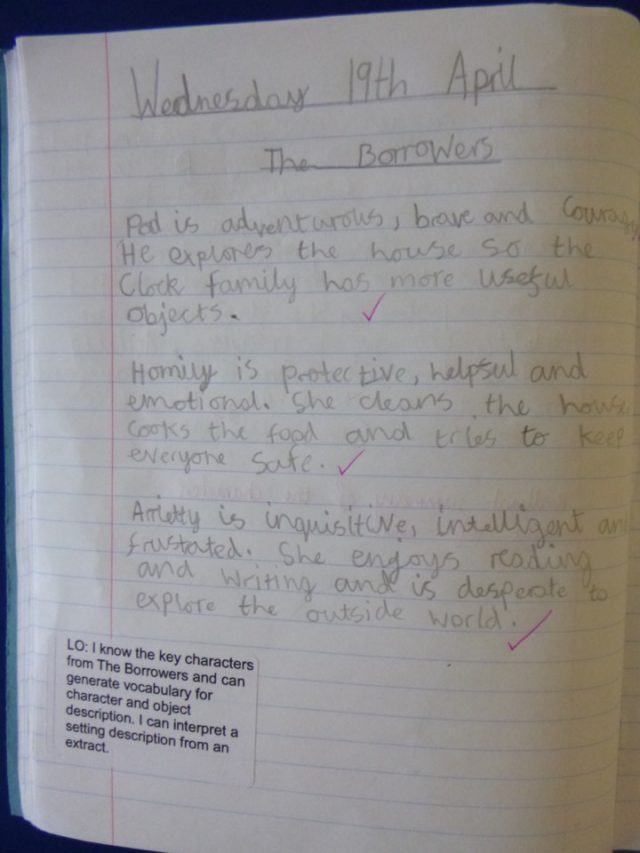 Wednesday 19th April
The Borrowers
Pod is adventurous, brave and
He explores the house so the
Clock family has more useful
objects.
Homily is protective, helpful and
emotional. She cleans the house
cooks the food and tries to keep
everyone safe.
Arrietty is inquisitive, intelligent an
frustated. She enjoys reading
and writing and is desperate to
explore the outside world.
LO: I know the key characters
from The Borrowers and can
generate vocabulary for
character and object
description. I can interpret a
setting description from an
extract.